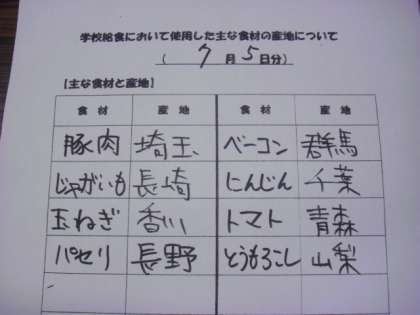 学校給食において使用した主な食材の産地について
( 7 月 5 日分)
【主な食材と産地】
食材 産地 食材 産地
豚肉 埼玉 ベーコン 群馬
じゃがいも 長崎 にんじん 千葉
玉ねぎ 香川 トマト 青森
パセリ 長野 とうもろこし 山梨